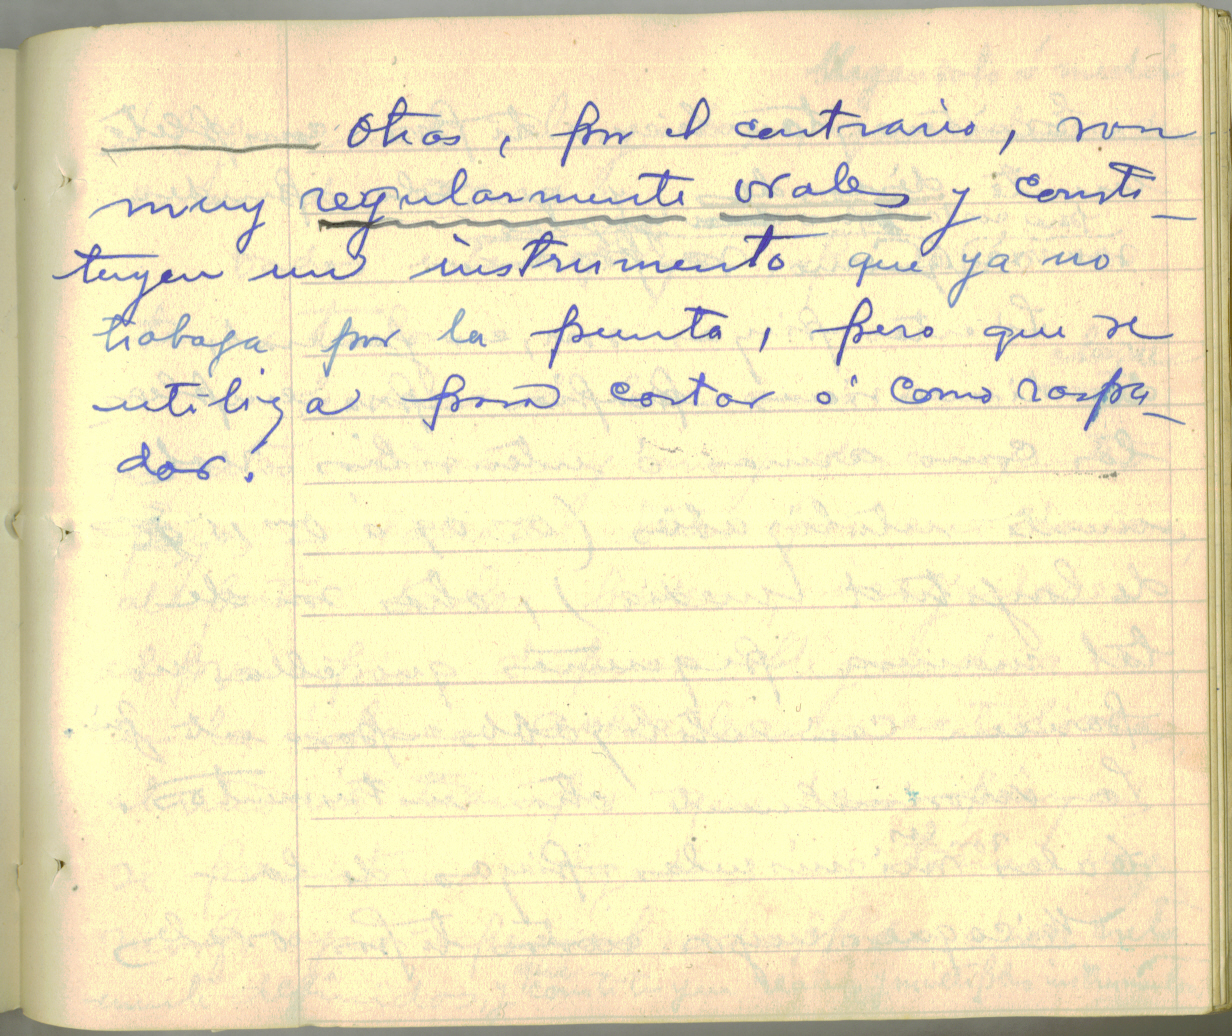 Otros, por el contrario, son
muy regularmente ovales y consti-
tuyen un instrumento que ya no
trabaja por la punta, pero que se
utiliza para cortar ó como raspa-
dor.